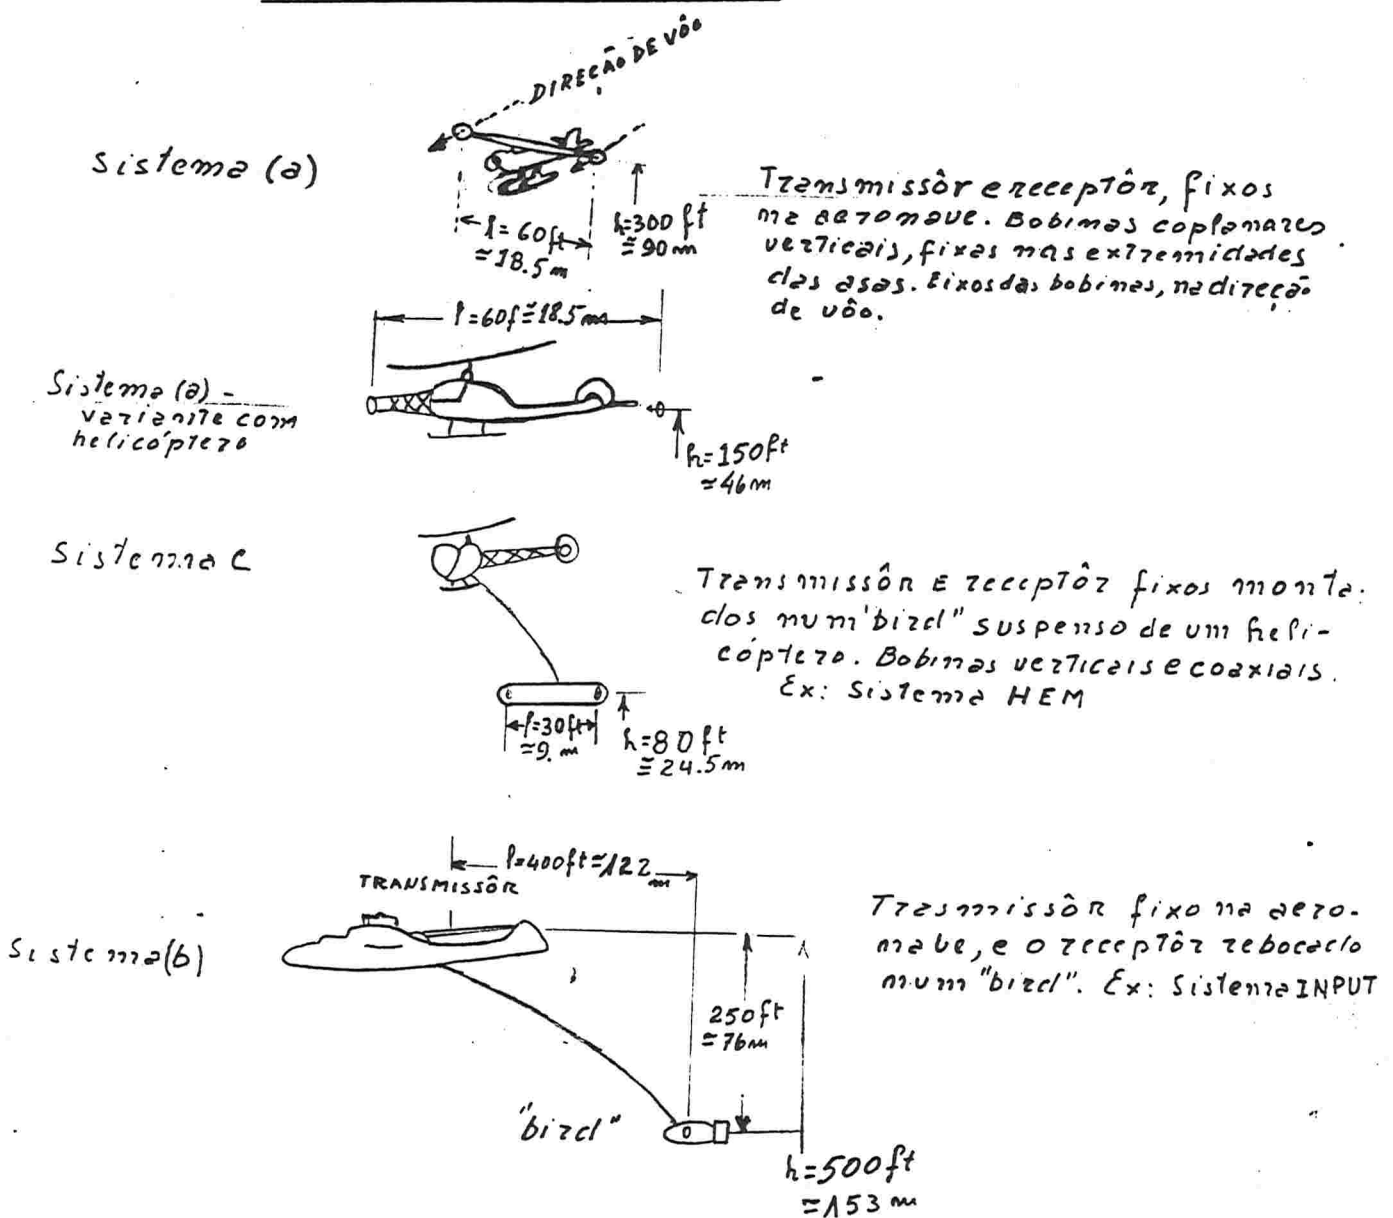 DIREÇÃO DE VÔO
Sistema (a)
l = 60ft
≃ 18.5m
h=300 ft
≃ 90m
Transmissôr e receptôr, fixos
na aeronave. Bobinas coplanares
verticais, fixas nas extremidades
das asas. Eixos das bobinas, na direção
de vôo.
l=60f≃18.5m
Sistema (a) -
variante com
helicóptero
h=150ft
≃46m
Sistema C
Transmissôr E receptôr fixos monta.
dos num 'bird" suspenso de um heli-
cóptero. Bobinas verticais e coaxiais.
Ex: Sistema HEM
l=30ft
≃9. m
h=80ft
≃24.5m
l=400ft≃122 m
TRANSMISSÔR
Sistema(b)
Trasmissôr fixo na aero-
nave, e o receptôr rebocado
num "bird". Ex: Sistema INPUT
250ft
≃76m
"bird"
h=500ft
≃153 m